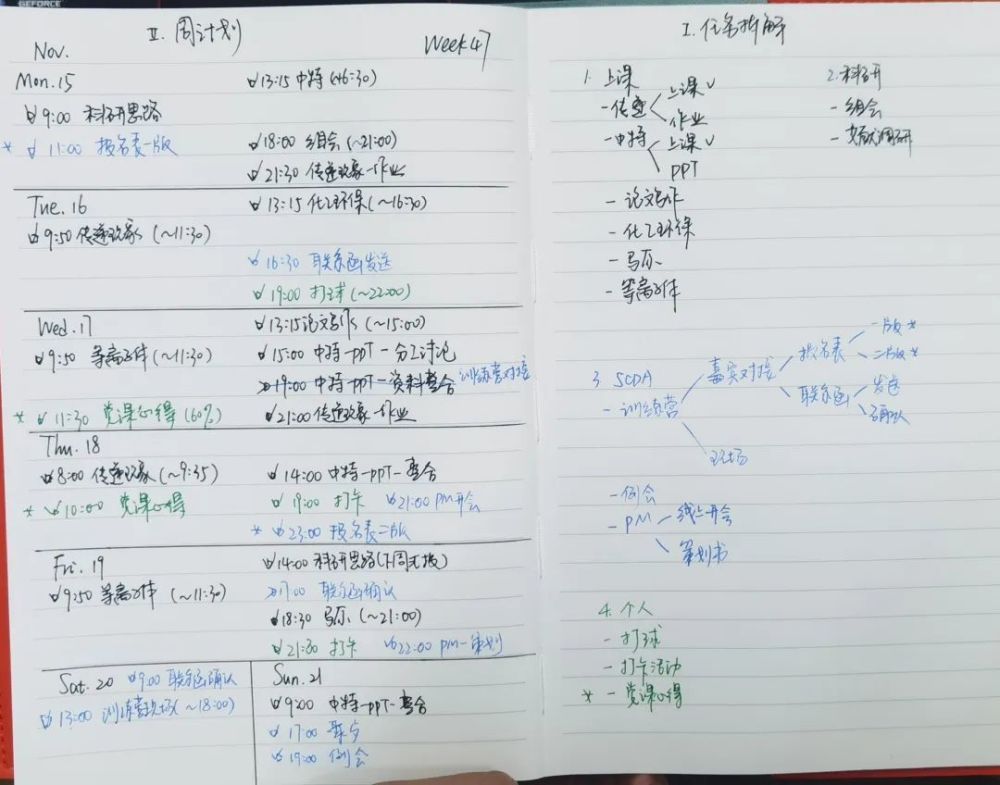 GEFORCE
II. 周计划
Nov.
Week 47
Mon. 15
13:15 中特 (~16:30)
9:00 科研思路
* 11:00 报名表一版
18:00 组会 (~21:00)
21:30 传递现象-作业
Tue. 16
13:15 化工环保 (~16:30)
9:50 传递现象 (~11:30)
16:30 联系函发送
19:00 打球 (~22:00)
Wed. 17
13:15 论文写作 (~15:00)
9:50 等离子体 (~11:30)
15:00 中特-ppt-分工讨论
19:00 中特-ppt-资料整合 训练营对接
* 11:30 党课心得 (60%)
21:00 传递现象-作业
Thu. 18
8:00 传递现象 (~9:35)
14:00 中特-ppt-整合
* 10:00 党课心得
19:00 打卡 21:00 PM开会
* 23:00 报名表二版
Fri. 19
14:00 科研思路(下周汇报)
9:50 等离子体 (~11:30)
17:00 联系函确认
18:30 马原 (~21:00)
21:30 打卡 22:00 PM-策划
Sat. 20 9:00 联系函确认
13:00 训练营现场 (~18:00)
Sun. 21
9:00 中特-ppt-整合
17:00
19:00 例会
I. 任务拆解
1. 上课
- 传递 上课 ✓
作业
- 中特 上课 ✓
PPT
- 论文写作
- 化工环保
- 马原
- 等离子体
2. 科研
- 组会
- 文献调研
3. SCDA
- 训练营
嘉宾对接
报名表
一版 *
二版 *
联系函
发送
确认
现场
- 例会
- PM 线上开会
策划书
4. 个人
- 打球
- 打卡活动
* - 党课心得